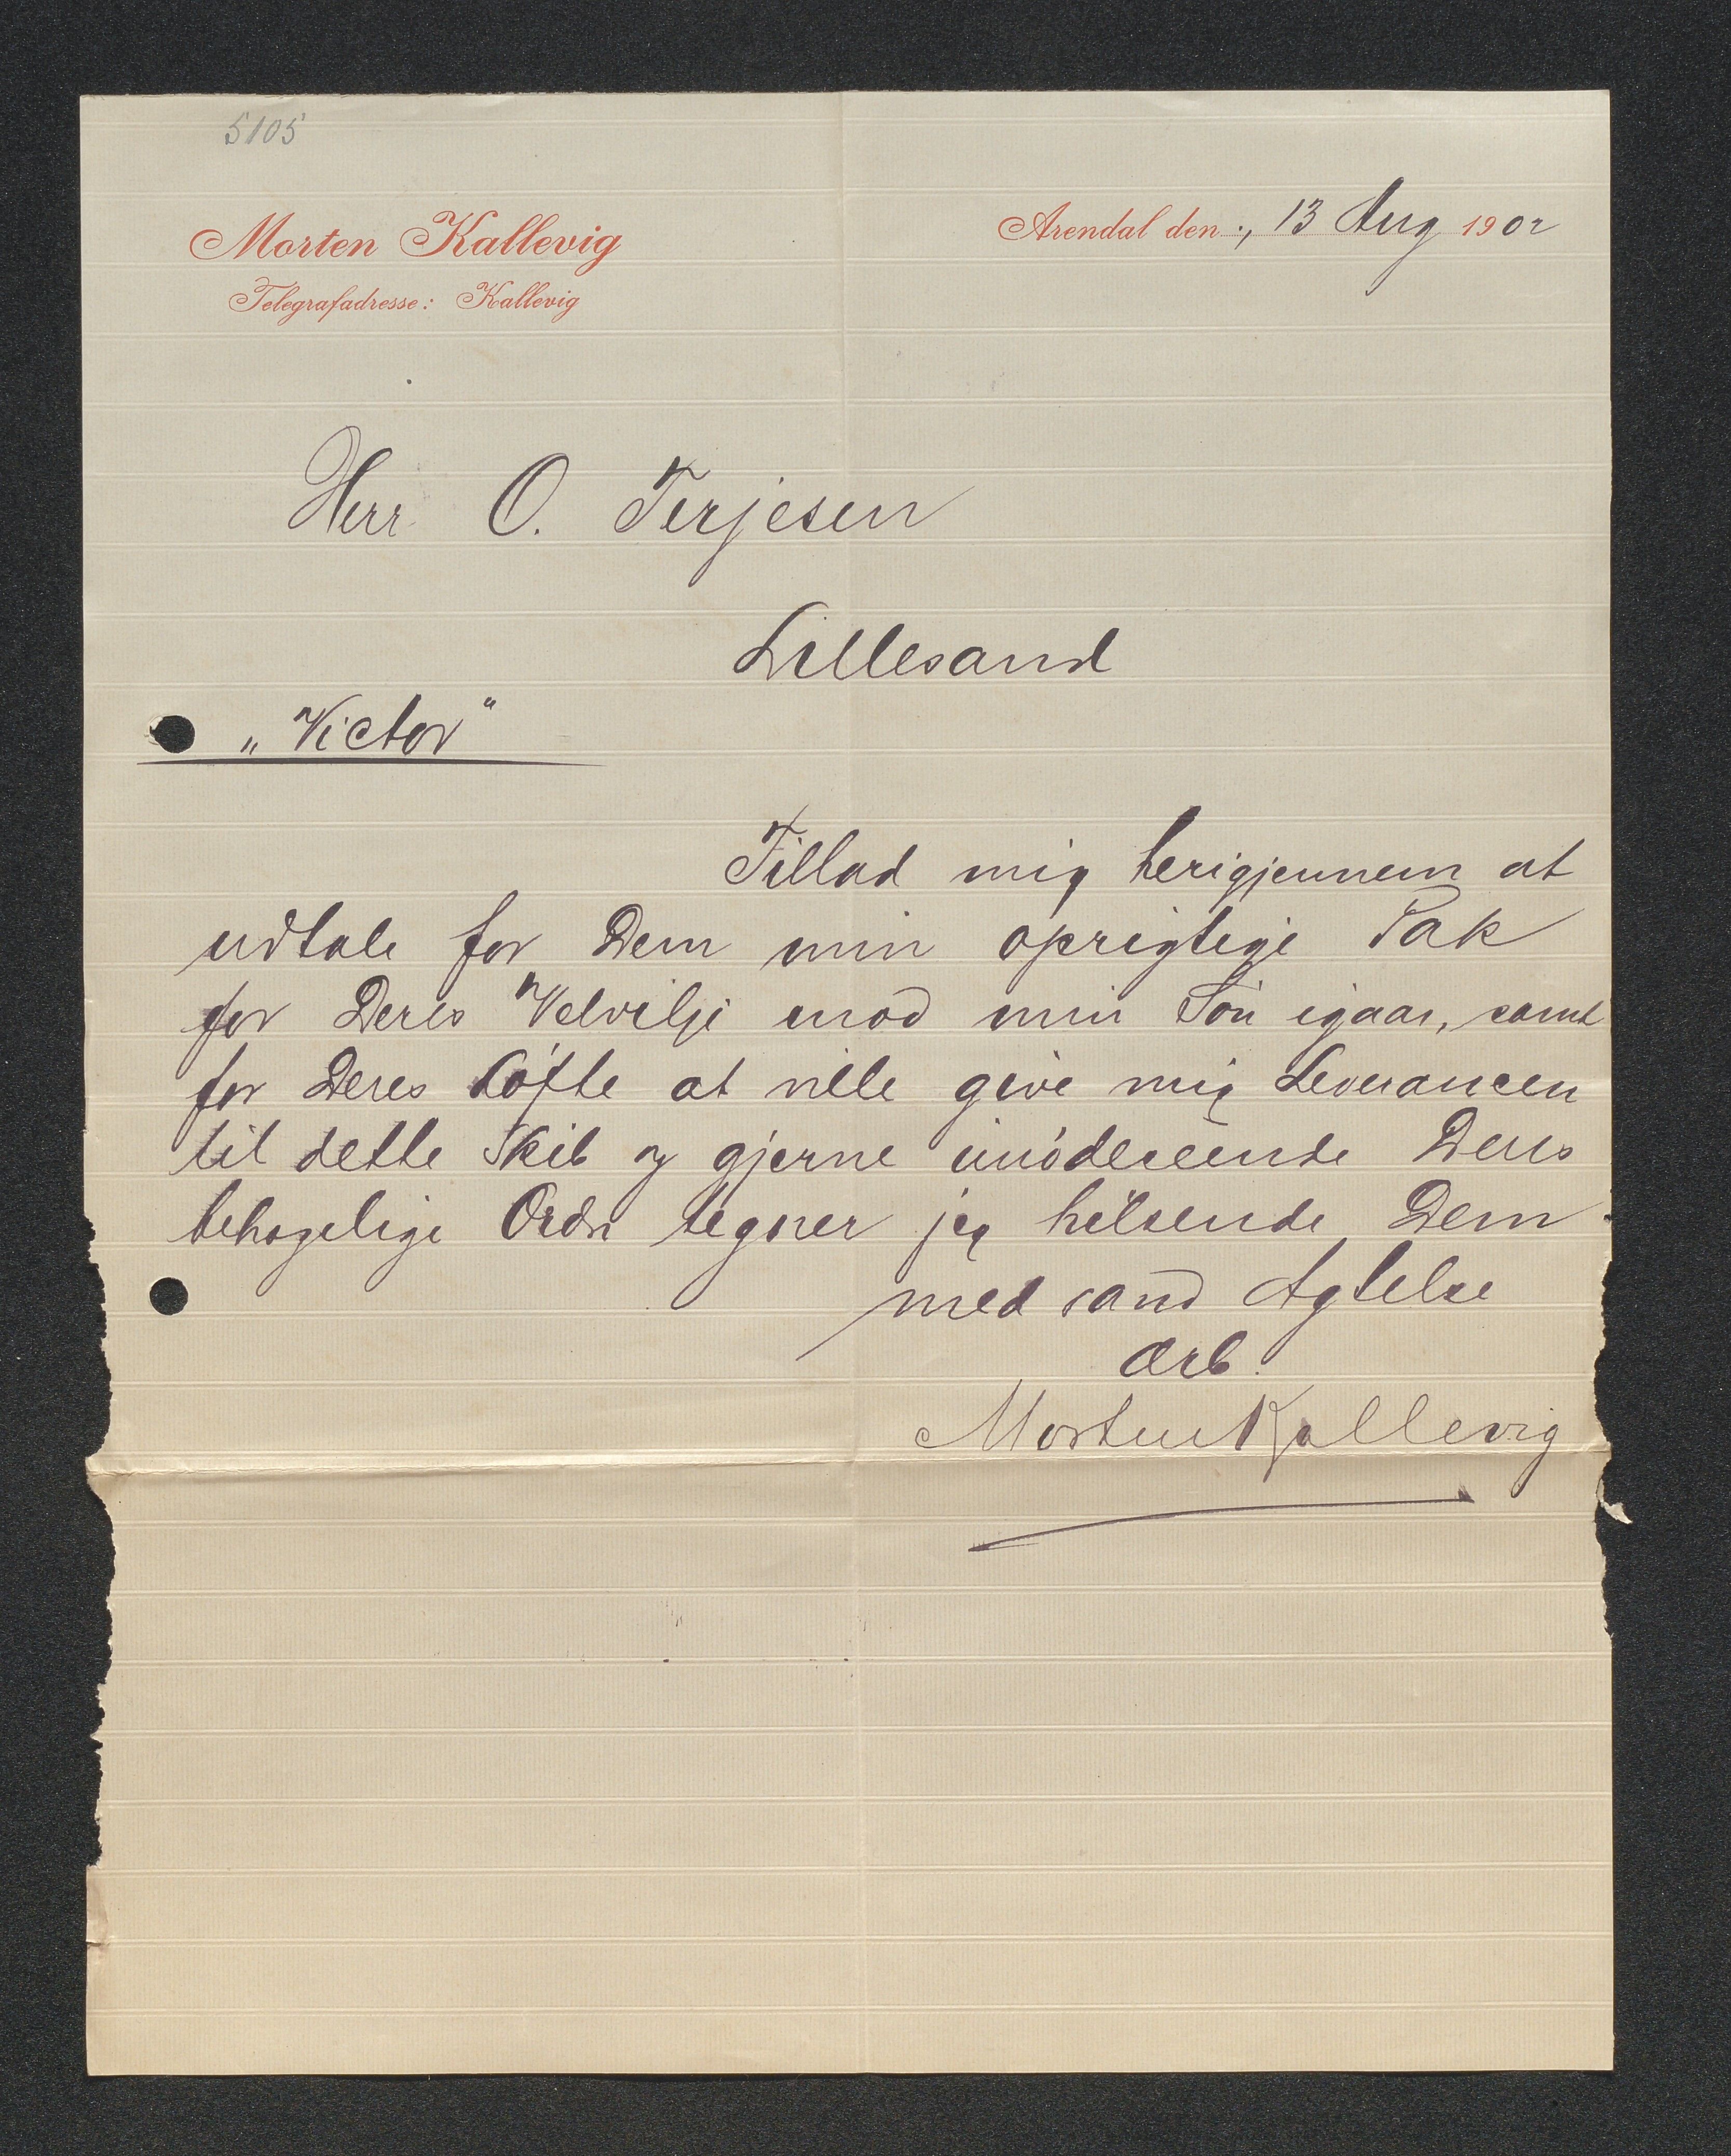 5105
Morten Kallevig
Telegrafadresse: Kallevig
Arendal den 13 Aug 1902
Herr O. Terjesen
Lillesand
„Victor"
Tillad mig herigjennem at
udtale for Dem min oprigtige Tak
for Deres Velvilje mod min Søn igaar, samt
for Deres Løfte at ville give mig Leverancen
til dette Skib og gjerne imødeseende Deres
behagelige Ordre tegner jeg hilsende Dem
med sand Agtelse
ærb.
Morten Kallevig